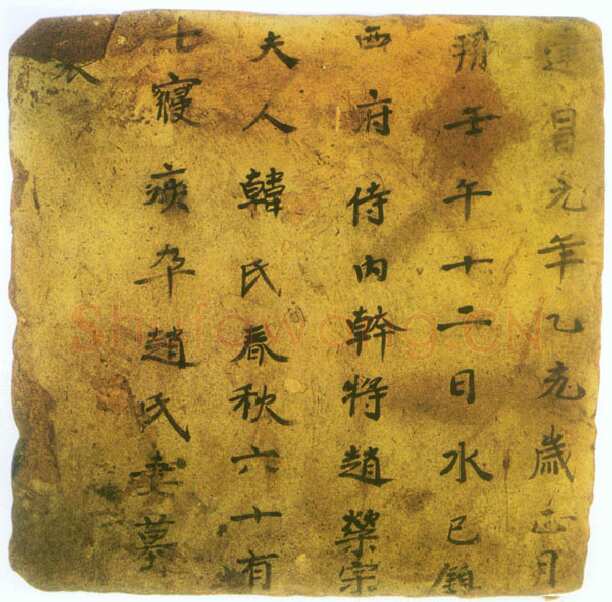 建昌元年乙亥歲正月
朔壬午十二日水巳鎮
西府侍內幹將趙榮宗
夫人韓氏春秋六十有
七寢疾卒趙氏妻墓
表
Shufawang.CN